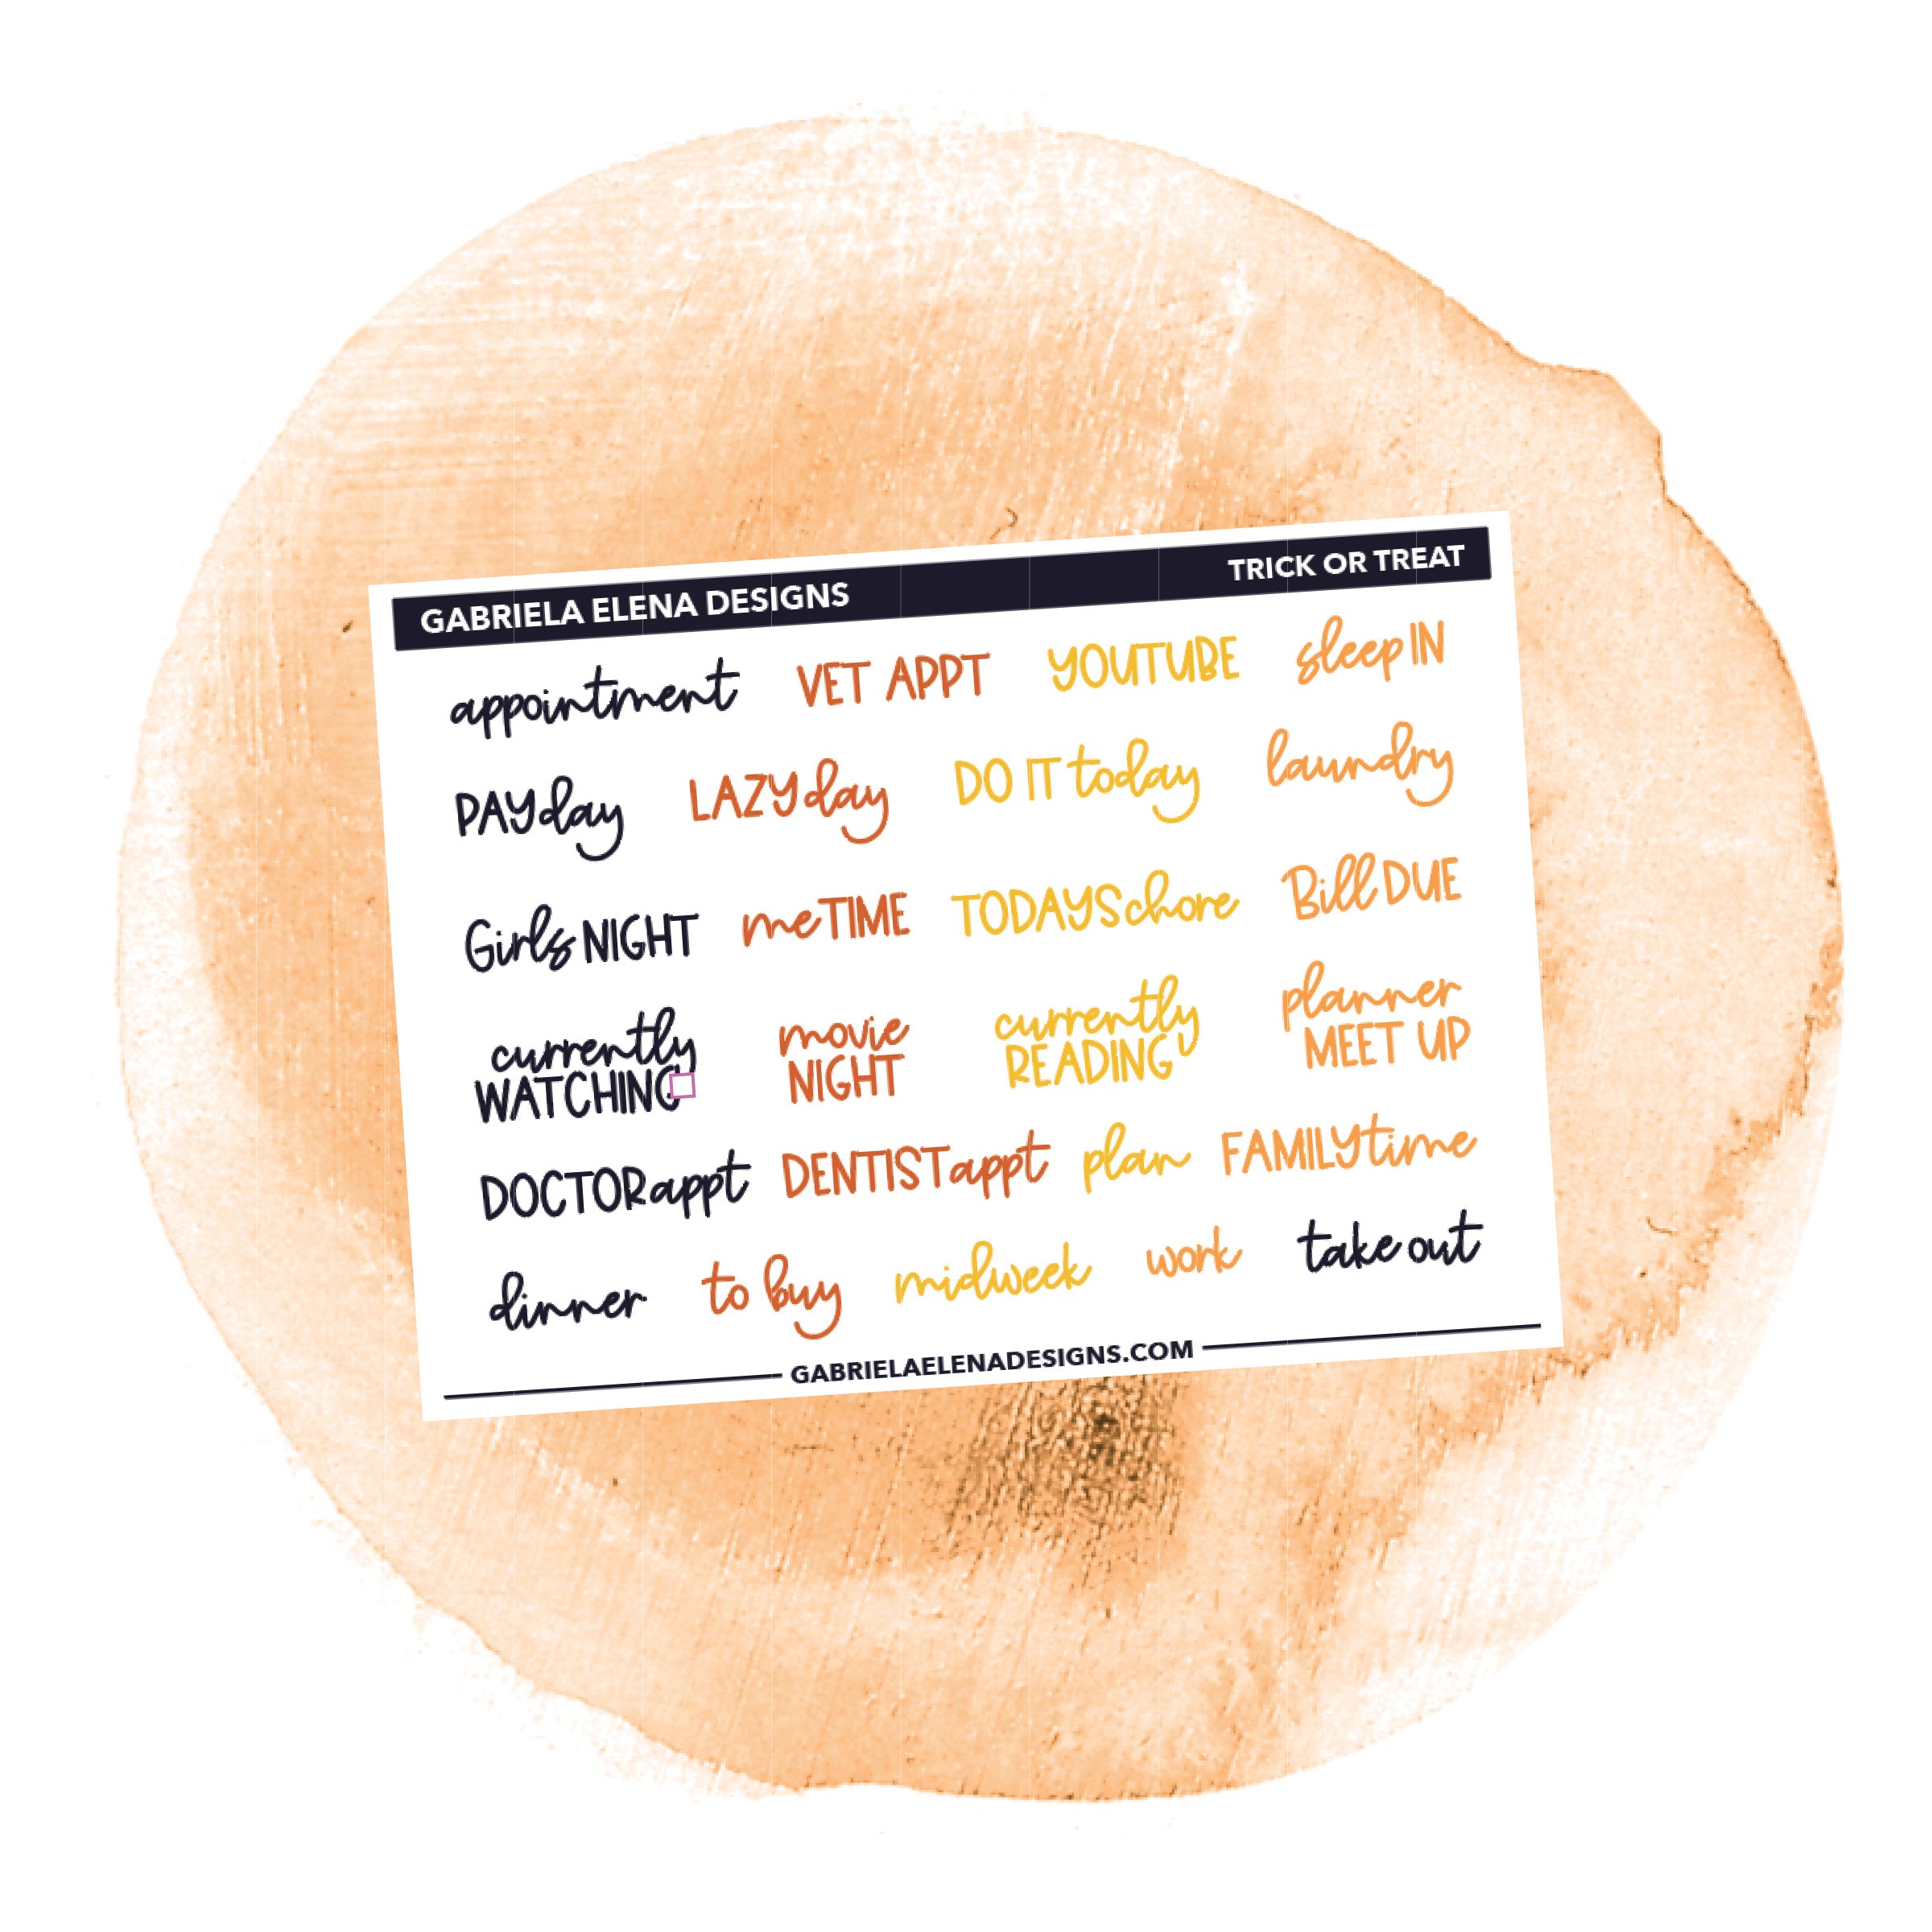 GABRIELA ELENA DESIGNS TRICK OR TREAT
appointment VET APPT YOUTUBE sleep IN
PAY day LAZY day DO IT today laundry
Girls NIGHT me TIME TODAYS chore Bill DUE
currently movie currently planner
WATCHING NIGHT READING MEET UP
DOCTOR appt DENTIST appt plan FAMILY time
dinner to buy midweek work take out
GABRIELAELENADESIGNS.COM